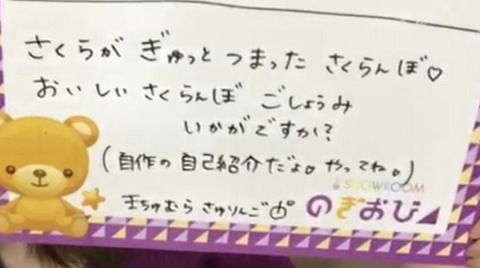 さくらが ぎゅっと つまった さくらんぼ♡
おいしい さくらんぼ ごしょうみ
いかがですか?
(自作の自己紹介だよ。やってね。)
SHOWROOM
のぎおび
ちゅむら さゅりんご